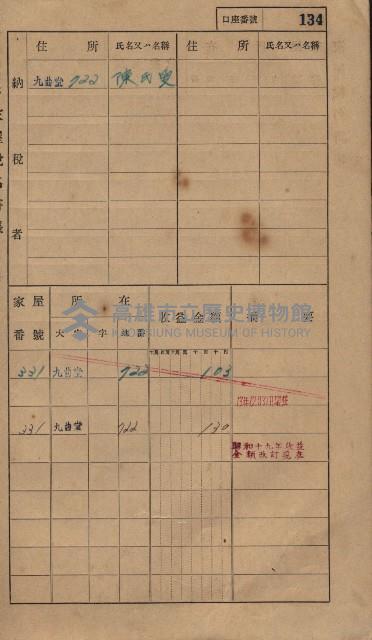 口座番號 134
住所 氏名又ハ名稱 住所 氏名又ハ名稱
納稅者
九曲堂 722 陳氏
家屋番號 所在 大字 字 地番 收益金額 摘要
331 九曲堂 722 103
331 九曲堂 722 130
昭和十九年收益
金額改訂
高雄市立歷史博物館
KAOHSIUNG MUSEUM OF HISTORY